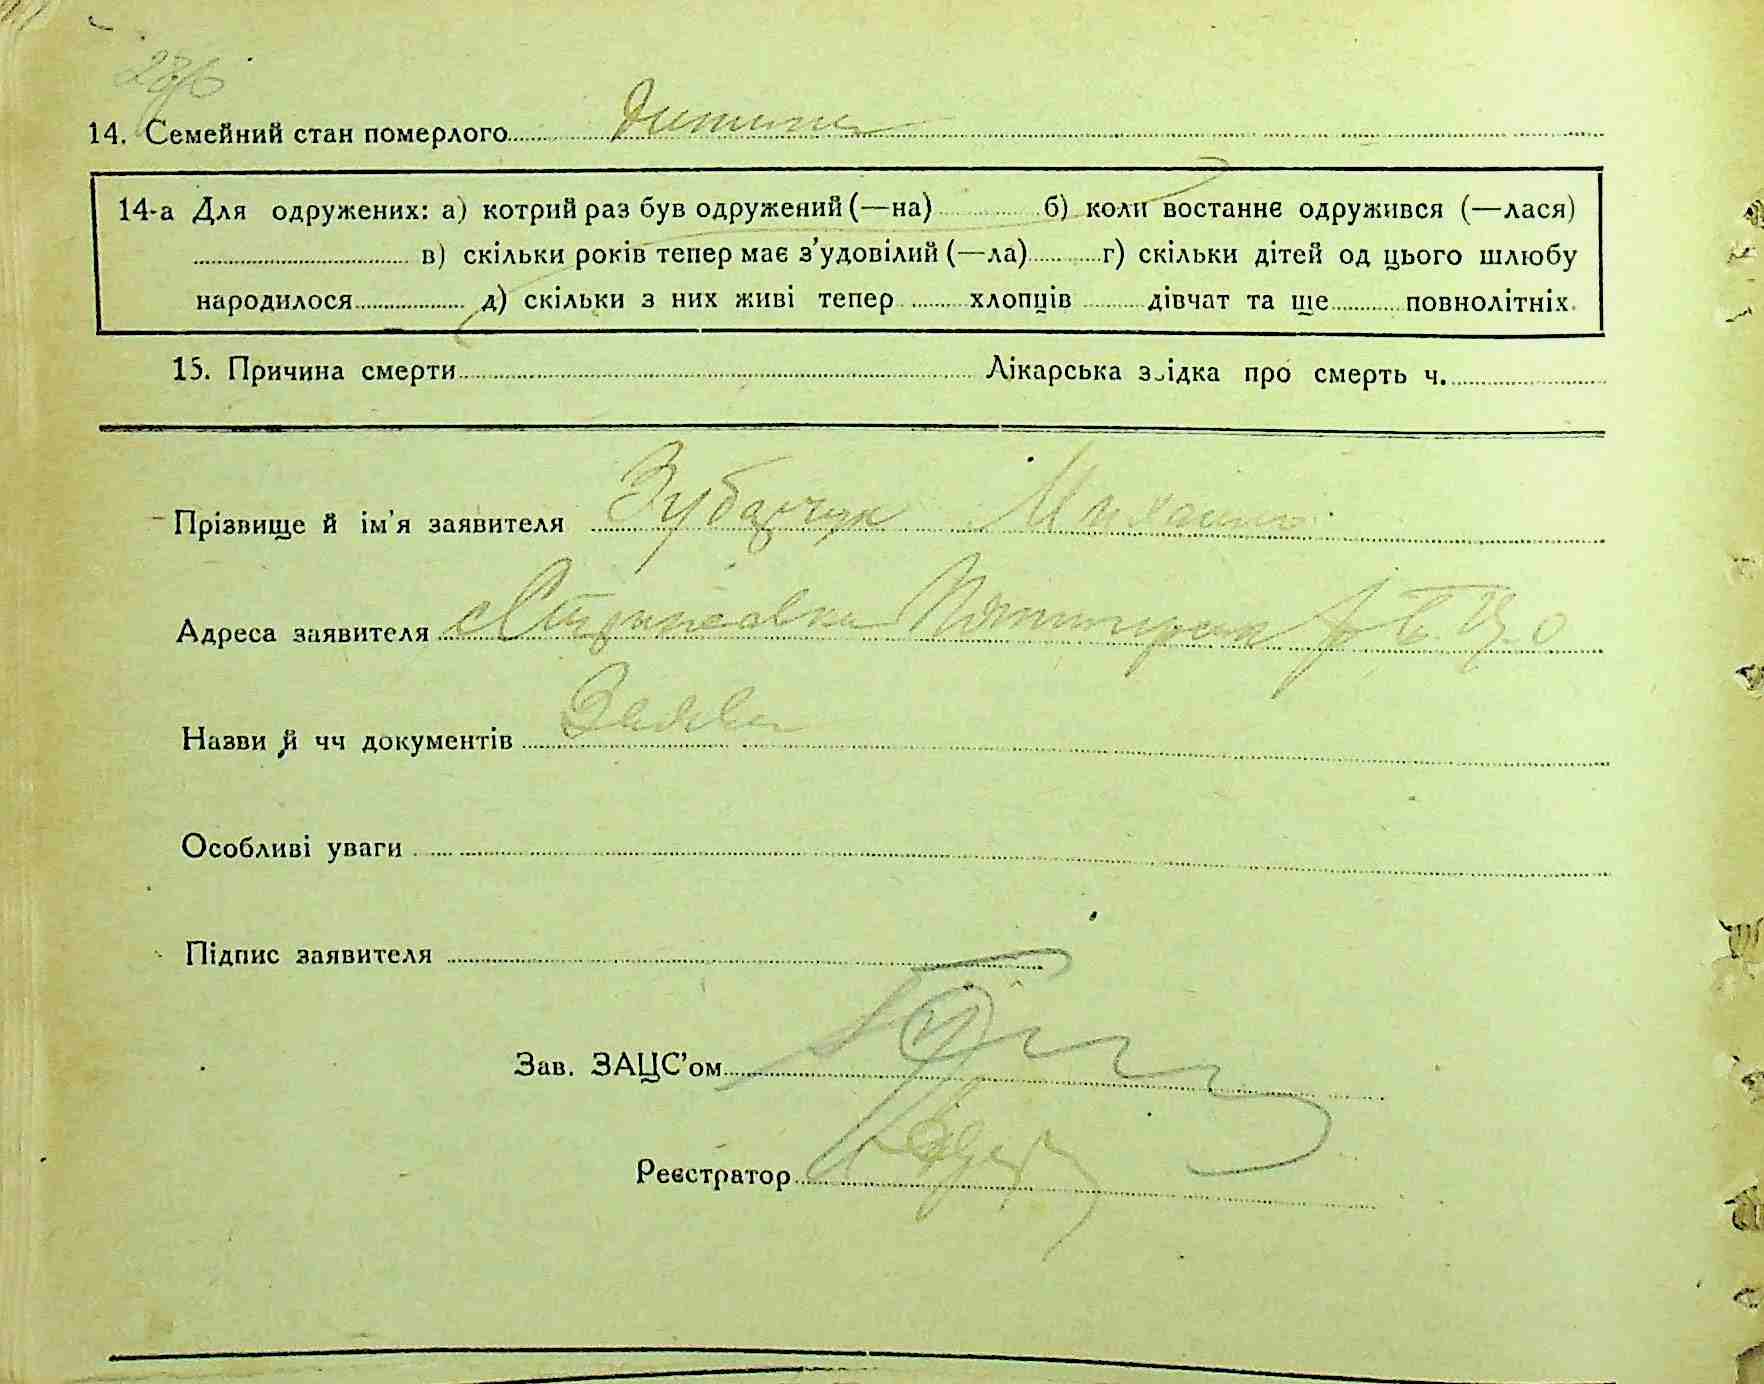 14. Семейний стан померлого дитина
14-а Для одружених: а) котрий раз був одружений (—на) б) коли востаннє одружився (—лася)
в) скільки років тепер має з'удовілий (—ла) г) скільки дітей од цього шлюбу
народилося д) скільки з них живі тепер хлопців дівчат та ще повнолітніх.
15. Причина смерти Лікарська звідка про смерть ч.
Прізвище й ім'я заявителя Зубарчук Михайло
Адреса заявителя
Назви й чч документів Заява
Особливі уваги
Підпис заявителя
Зав. ЗАЦС'ом
Реєстратор